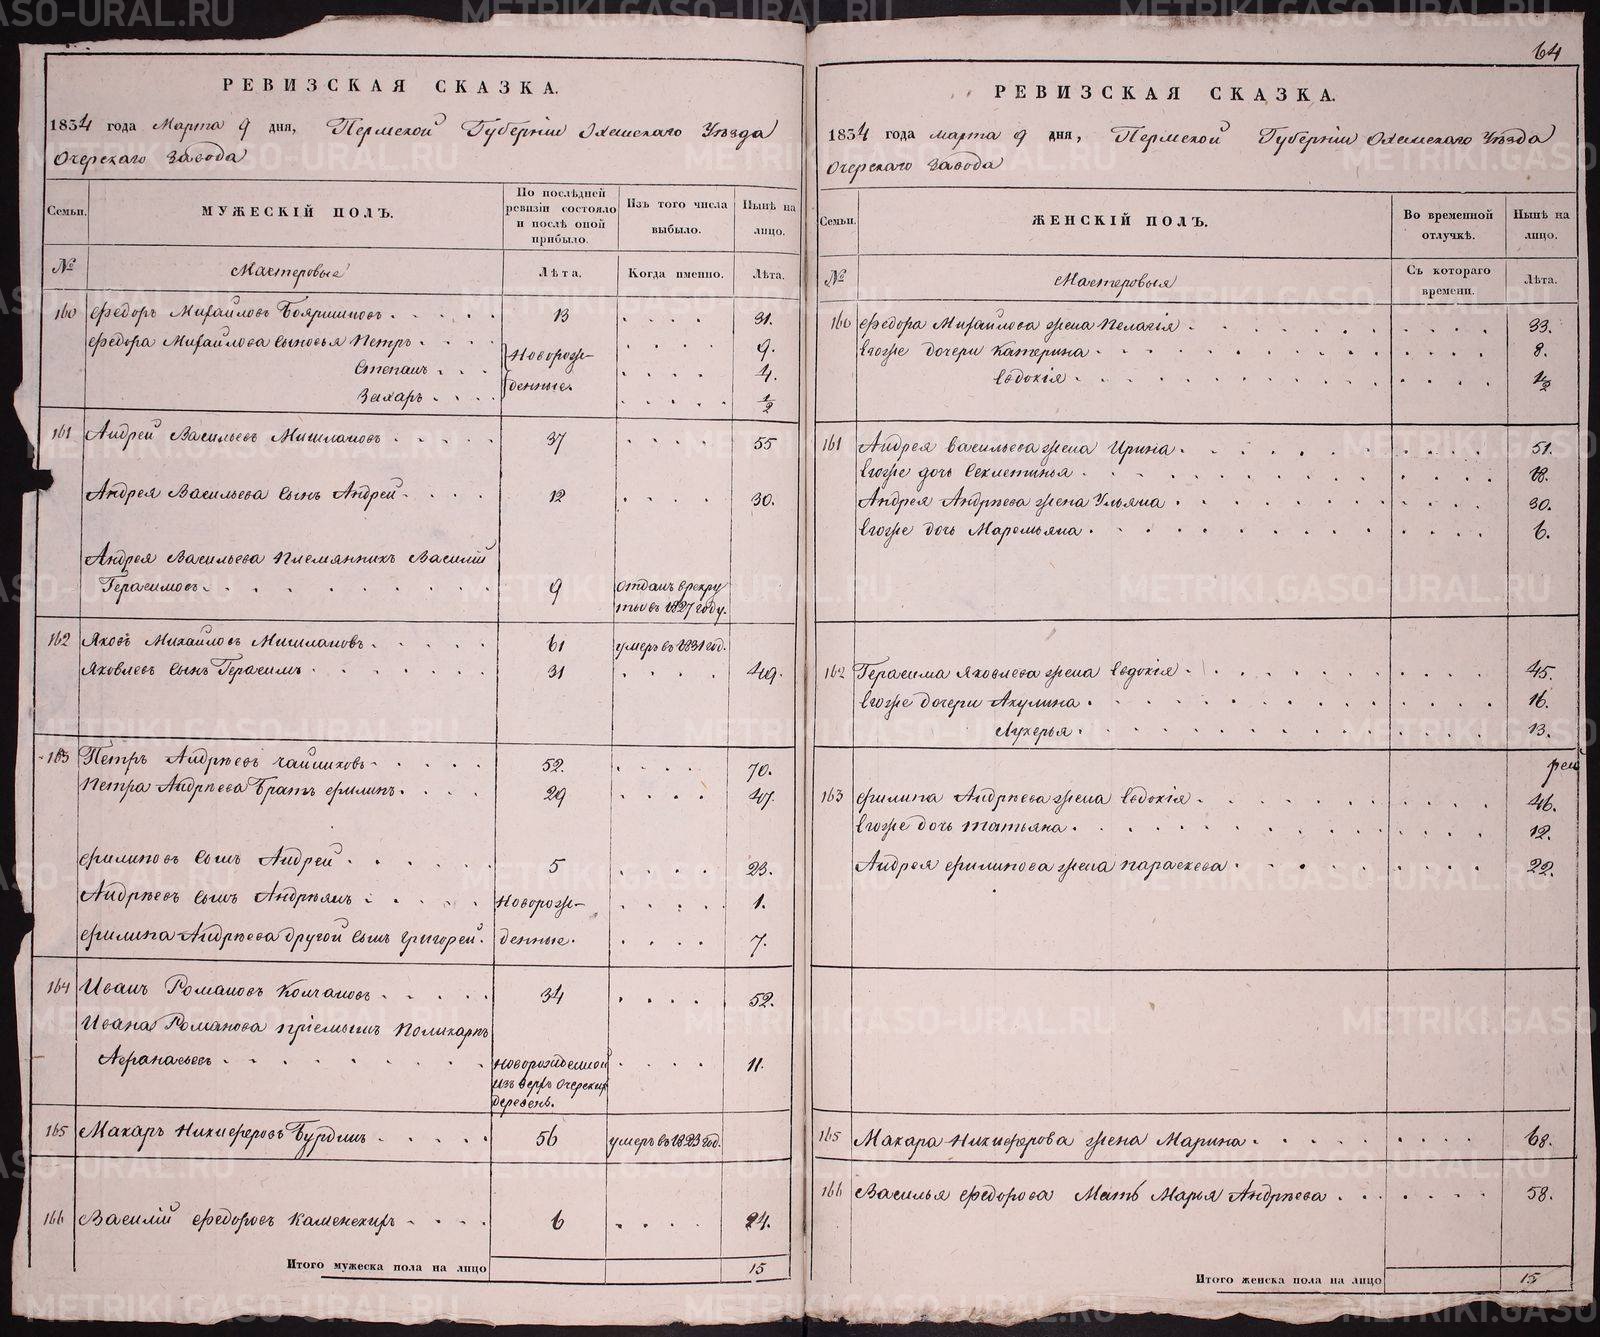 64
РЕВИЗСКАЯ СКАЗКА.
1834 года Марта 9 дня, Пермской Губерніи Оханскаго Уѣзда
Очерскаго Завода
Семьи.
МУЖЕСКІЙ ПОЛЪ.
По послѣдней ревизіи состояло и послѣ оной прибыло.
Изъ того числа выбыло.
Нынѣ на лицо.
№
Мастеровые
Лѣта.
Когда именно.
Лѣта.
160 Федоръ Михайловъ Бояршиновъ 13 31.
Федора Михайлова сыновья Петръ Новорож- 9.
Степанъ денные. 4.
Захаръ 1/2
161 Андрей Васильевъ Мишлановъ 37 55
Андрея Васильева сынъ Андрей 12 30.
Андрея Васильева племянникъ Василій
Герасимовъ 9 отданъ в рекру
ты въ 1827 году.
162 Яковъ Михайловъ Мишлановъ 61 умеръ въ 1831 год.
Яковлевъ сынъ Герасимъ 31 49.
163 Петръ Андрѣевъ Чайниковъ 52. 70.
Петра Андрѣева братъ Филипъ 29 47.
Филиповъ сынъ Андрей 5 23.
Андрѣевъ сынъ Андрѣянъ Новорож- 1.
Филипа Андрѣева другой сынъ Григорей денные. 7.
164 Иванъ Романовъ Колчановъ 34 52.
Ивана Романова пріемышъ Поликарпъ
Афанасьевъ новорожденной 11.
изъ верхъ очерскихъ
деревень.
165 Макаръ Никифоровъ Бурдинъ 56 умеръ въ 1823 год.
166 Василій Федоровъ Каменскихъ 6 24.
Итого мужеска пола на лицо 15
РЕВИЗСКАЯ СКАЗКА.
1834 года марта 9 дня, Пермской Губерніи Оханскаго Уѣзда
Очерскаго Завода
Семьи.
ЖЕНСКІЙ ПОЛЪ.
Во временной отлучкѣ.
Нынѣ на лицо.
№
Мастеровыя
Съ котораго времени.
Лѣта.
160 Федора Михайлова жена Пелагія 33.
Егоже дочери Катерина 8.
Евдокія 1/2
161 Андрея Васильева жена Ирина 51.
Егоже дочь Секлетинья 18.
Андрея Андрѣева жена Ульяна 30.
Егоже дочь Маремьяна 6.
162 Герасима Яковлева жена Евдокія 45.
Егоже дочери Акулина 16.
Лукерья 13.
163 Филипа Андрѣева жена Евдокія 46.
Егоже дочь Татьяна 12.
Андрея Филипова жена Параскева 22.
165 Макара Никифорова жена Марина 68.
166 Василья Федорова мать Марья Андрѣева 58.
Итого женска пола на лицо 15
METRIKI.GASO-URAL.RU